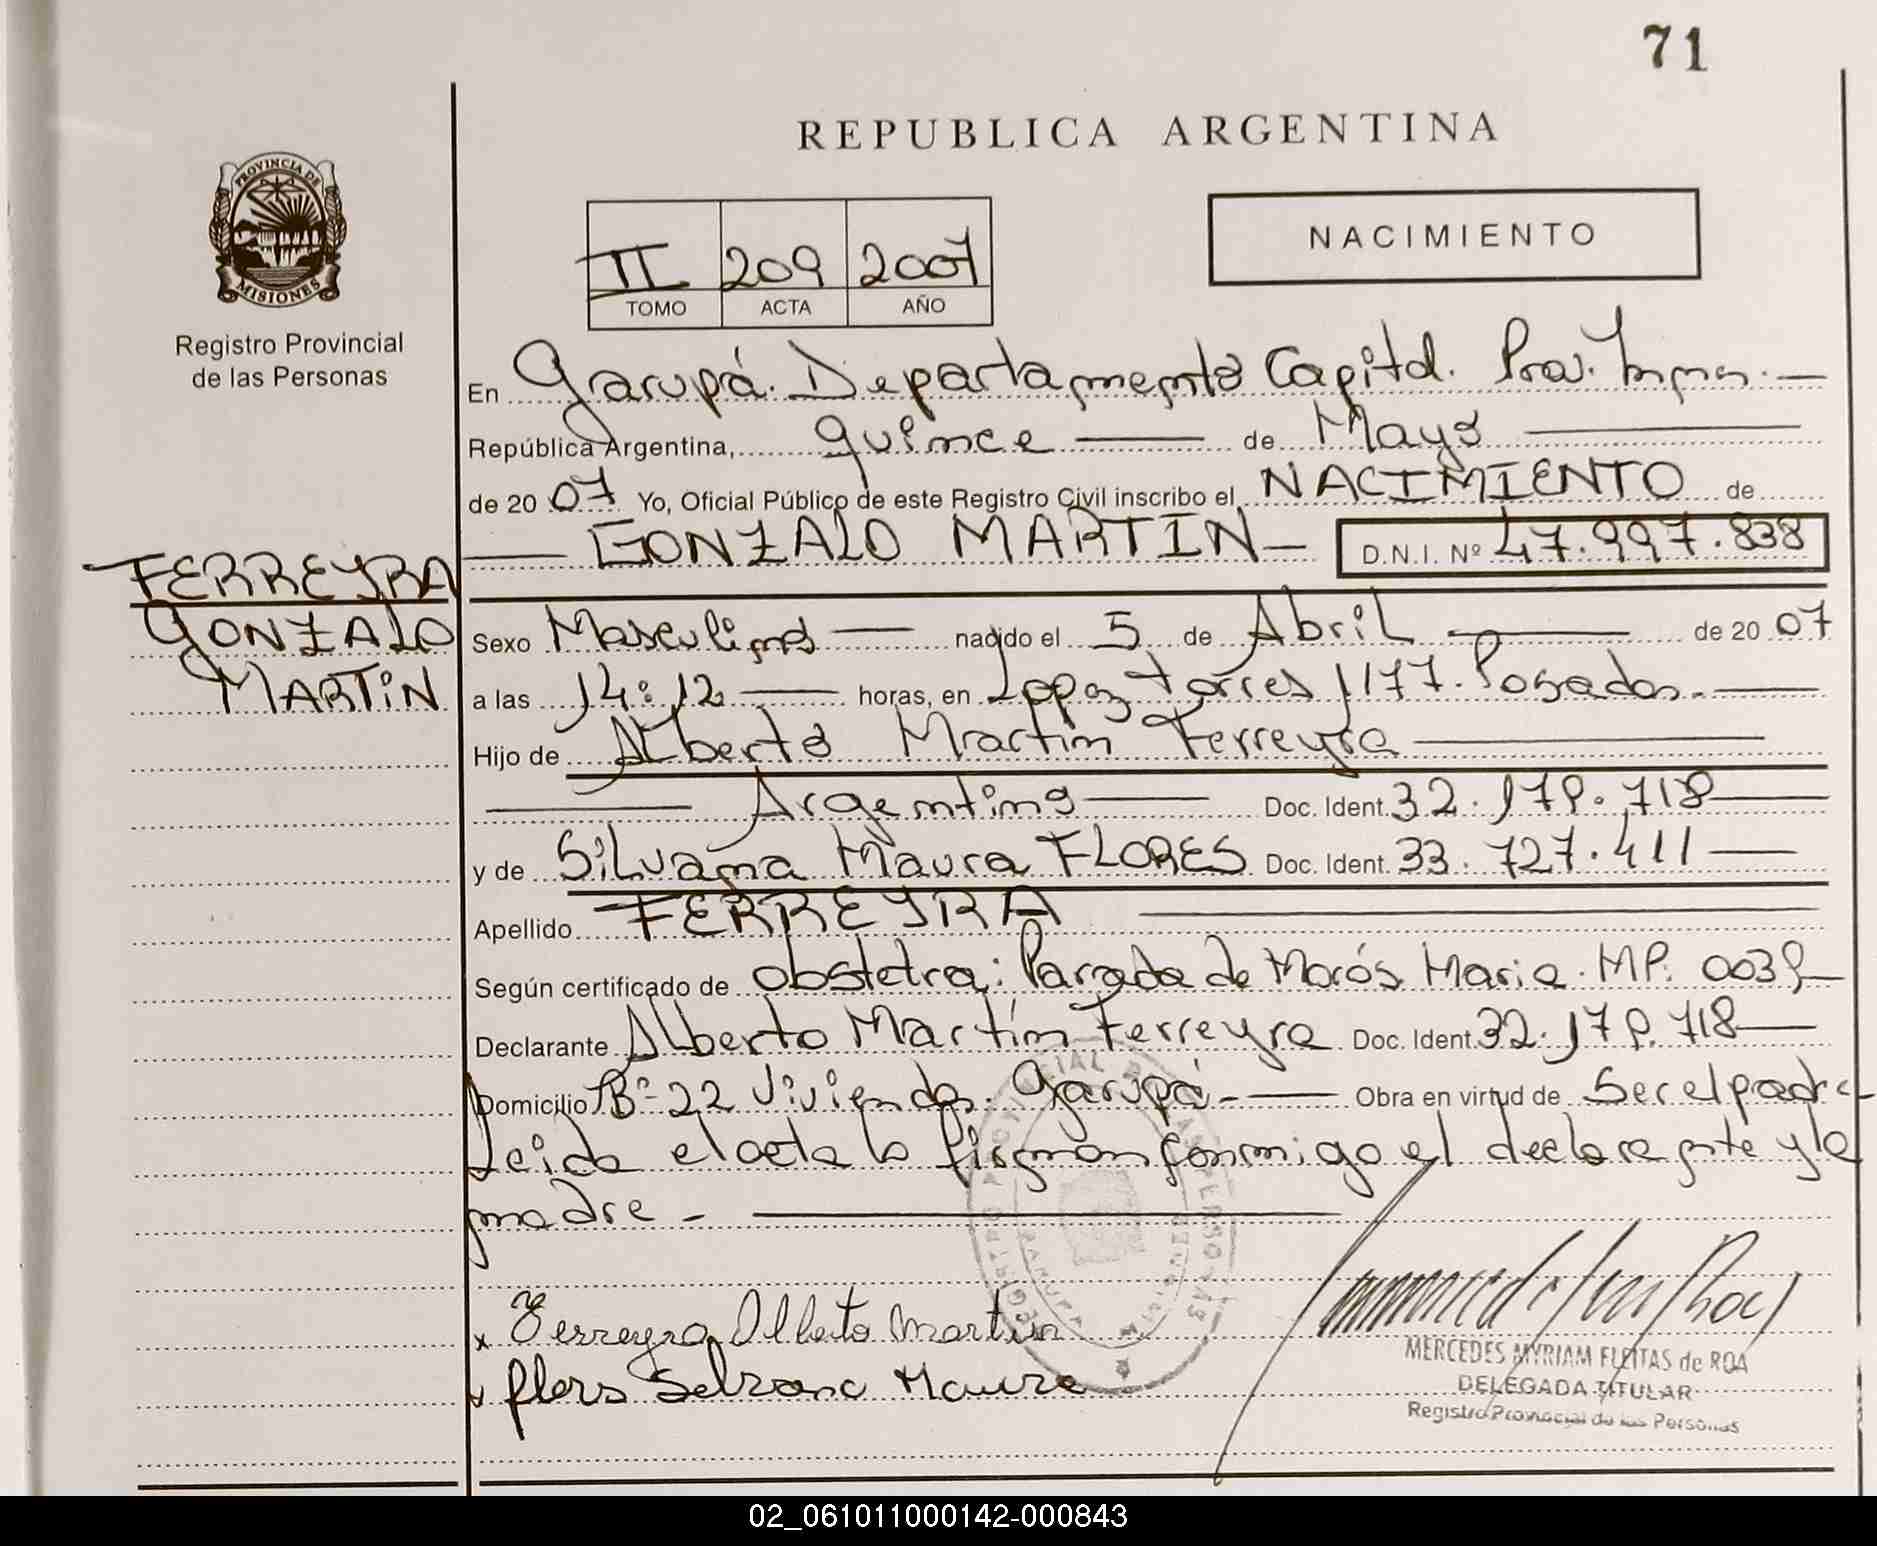 71
REPUBLICA ARGENTINA
PROVINCIA DE
MISIONES
Registro Provincial
de las Personas
II 209 2007
TOMO ACTA AÑO
NACIMIENTO
En Garupá. Departamento Capital. Prov. Mnes. —
República Argentina, quince — de Mayo —
de 20 07 Yo, Oficial Público de este Registro Civil inscribo el NACIMIENTO de
— GONZALO MARTIN — D.N.I. Nº 47.997.838
FERREYRA
GONZALO
MARTIN
Sexo Masculino — nacido el 5 de Abril — de 20 07
a las 14:12 — horas, en Lopez Torres 1177. Posadas. —
Hijo de Alberto Martín Ferreyra —
— Argentino — Doc. Ident. 32.179.718 —
y de Silvana Maura FLORES Doc. Ident. 33.727.411 —
Apellido FERREYRA —
Según certificado de obstetra: Parrada de Morós Maria. MP. 0039 —
Declarante Alberto Martín Ferreyra Doc. Ident. 32.179.718 —
Domicilio Bº 22 Viviendas. Garupá — Obra en virtud de Ser el padre
Leida el acta lo firman conmigo el declarante y la
madre. —
x Ferreyra Alberto Martin
x flors Selvana Maura
MERCEDES MYRIAM FLEITAS de ROA
DELEGADA TITULAR
Registro Provincial de las Personas
02_061011000142-000843